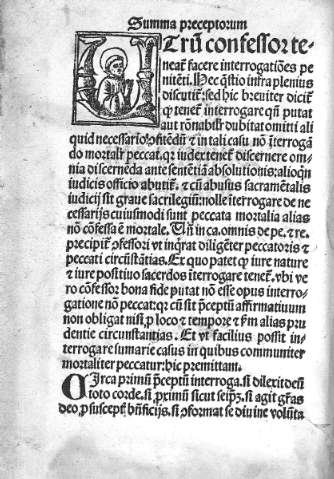 Summa preceptorum
Utrū confessor te-
neat᷑ facere interrogatiōes pe
nitēti. Hec q̄stio infra plenius
discutit᷑: sed hic breviter dicit᷑
ꝙ tenet᷑ interrogare qñ putat
aut rōnabilr̄ dubitat omitti ali
quid necessario ꝯfitēdū ⁊ in tali casu nō īterrogā
do mortalr̄ peccat. qr iudex tenet᷑ discernere om-
nia discernēda ante sentētiā absolutionis: alioqn
iudicis officio abutit᷑. ⁊ cū abusus sacramētalis
iudicij sit graue sacrilegiū: nolle īterrogare de ne
cessarijs cuiusmodi sunt peccata mortalia alias
nō cōfessa ē mortale. Uñ in ca. omnis de pe. ⁊ re.
precipit᷑ ꝯfessori vt inqrat diligēter peccatoris ⁊
peccati circūstātias. Et quo patet ꝙ iure nature
⁊ iure positiuo sacerdos īterrogare tenet᷑. vbi ve
ro cōfessor bona fide putat nō esse opus interro-
gatione nō peccat: qr cū sit p̄ceptū affirmatiuum
non obligat nisi ꝓ loco ⁊ tempore ⁊ ẜm alias pru
dentie circunstantias. Et vt facilius possit in-
terrogare summarie casus in quibus communiter
mortaliter peccatur: hic premittam.
Circa primū p̄ceptū interroga. si dilexit deū
toto corde. si ꝓximū sicut seipꝫ. si agit gr̄as
deo ꝓ suscept᷑ bñficijs. si ꝯformat se diuine volūta